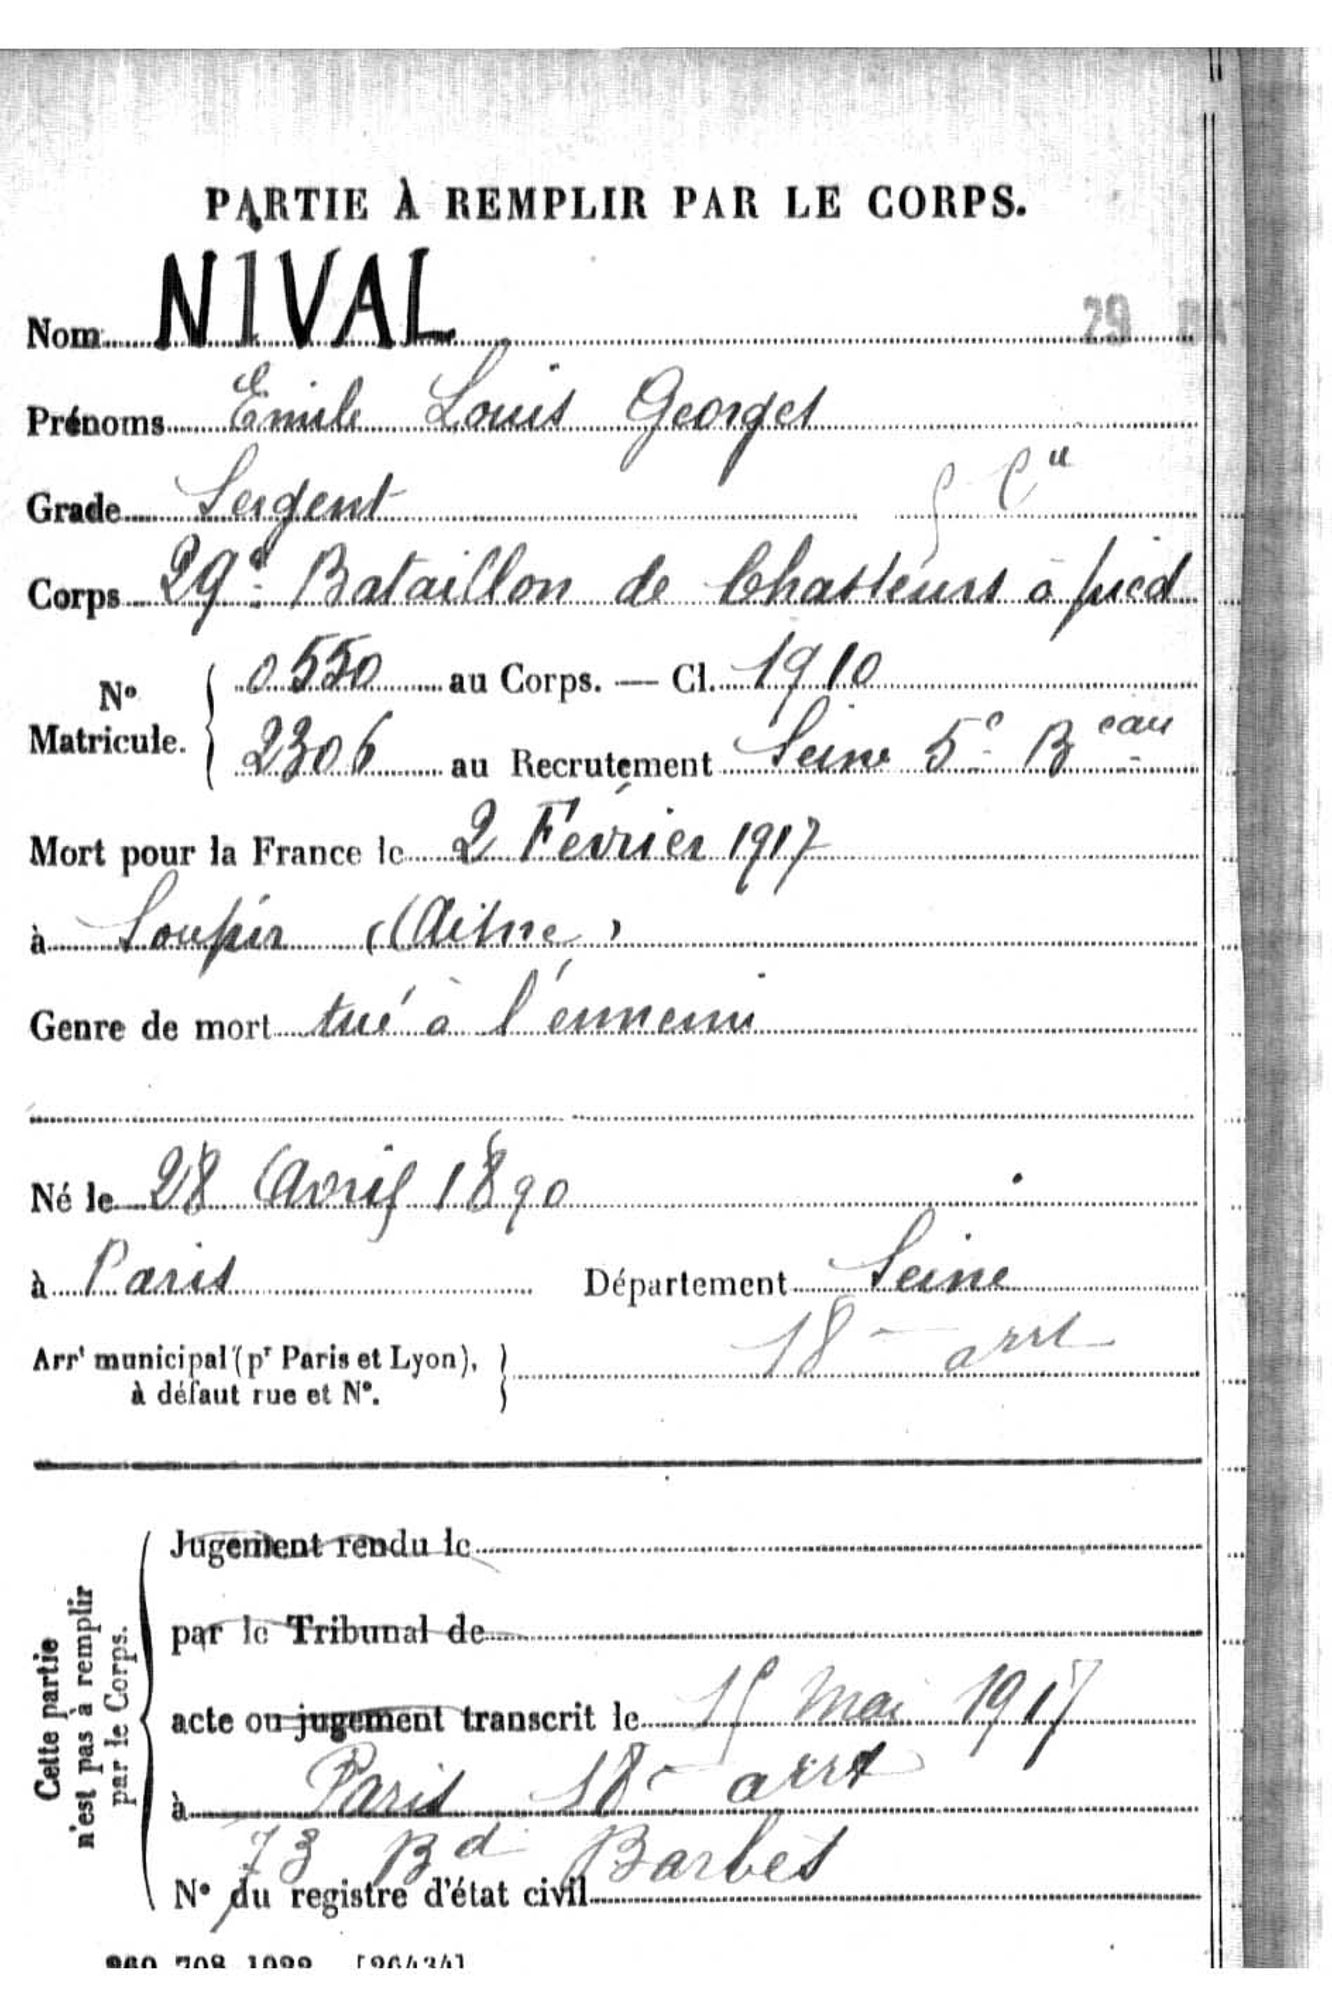 PARTIE À REMPLIR PAR LE CORPS.
Nom NIVAL
29 BAT
Prénoms Emile Louis Georges
Grade Sergent Cie
Corps 29e Bataillon de Chasseurs à pied
No Matricule. 0550 au Corps. — Cl. 1910
2306 au Recrutement Seine 5e Beau
Mort pour la France le 2 Février 1917
à Soupir (Aisne)
Genre de mort tué à l'ennemi
Né le 28 Avril 1890
à Paris Département Seine
Arrt municipal (pr Paris et Lyon), à défaut rue et No. 18e arrt
Cette partie n'est pas à remplir par le Corps.
Jugement rendu le
par le Tribunal de
acte ou jugement transcrit le 15 mai 1917
à Paris 18e arrt
73 Bd Barbès
No du registre d'état civil